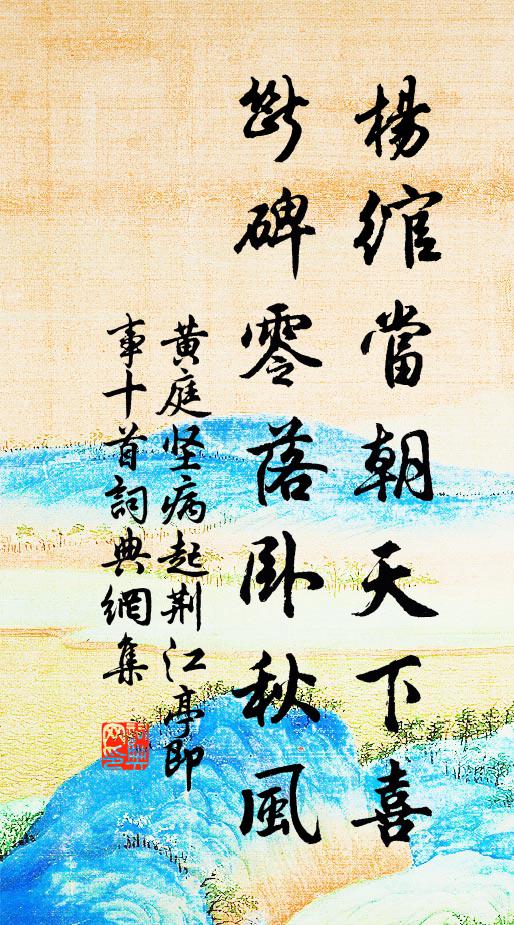 楊綰當朝天下喜
斷碑零落臥秋風
黄庭坚病起荆江亭即
事十首詞典網集